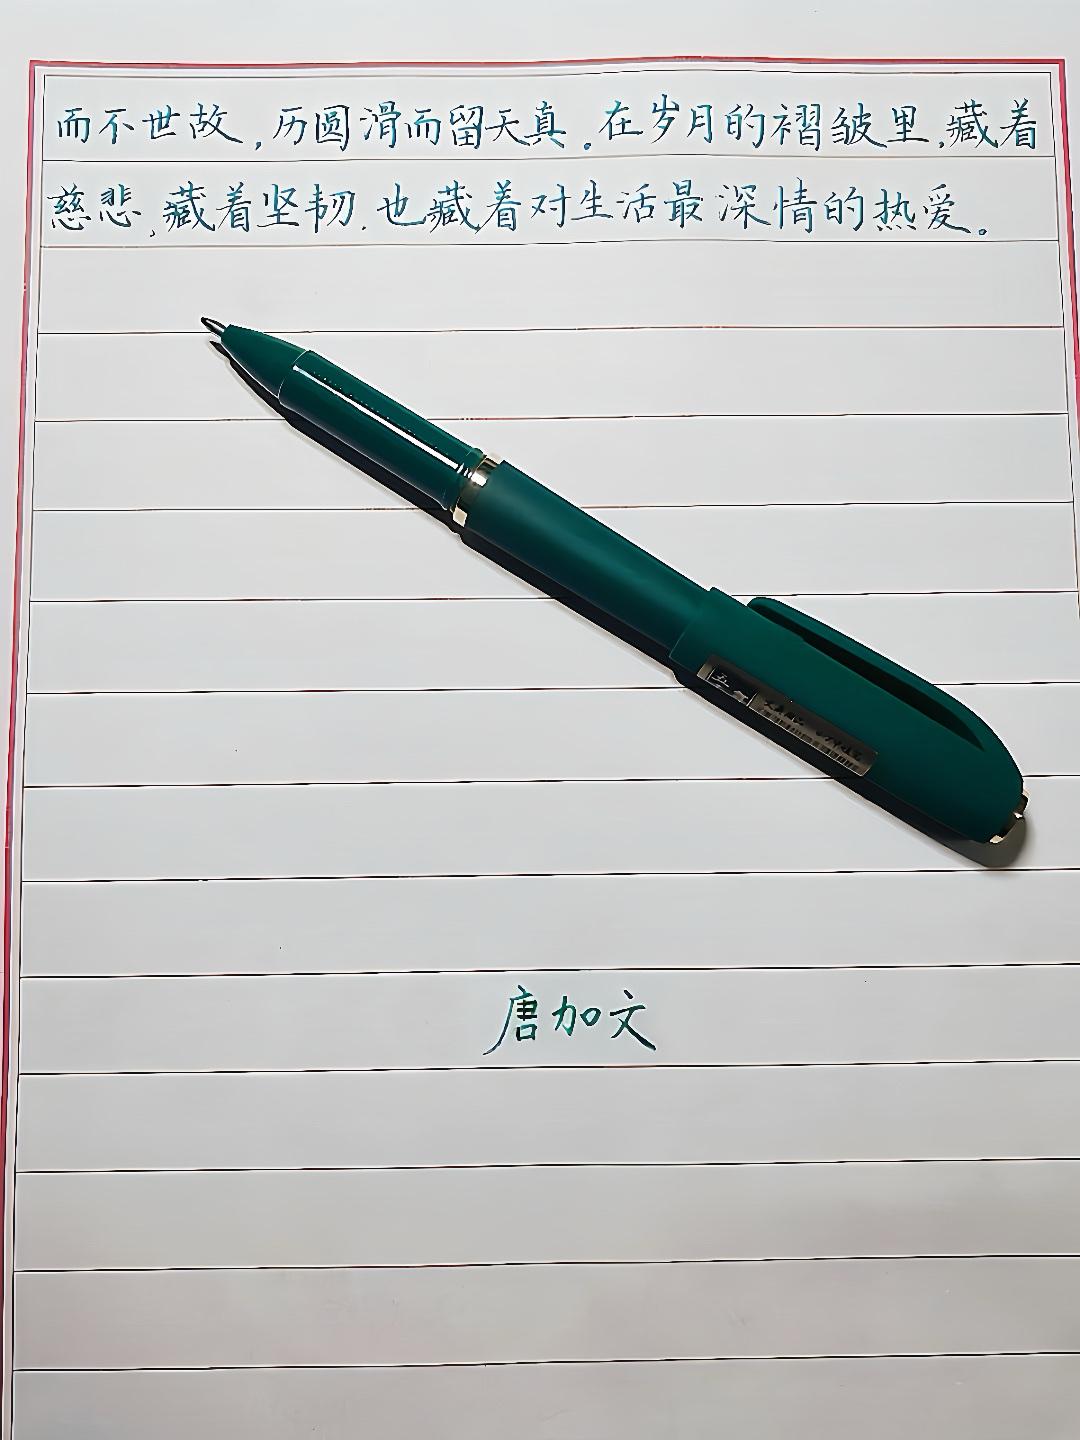 而不世故,历圆滑而留天真。在岁月的褶皱里,藏着
慈悲,藏着坚韧.也藏着对生活最深情的热爱。
唐加文